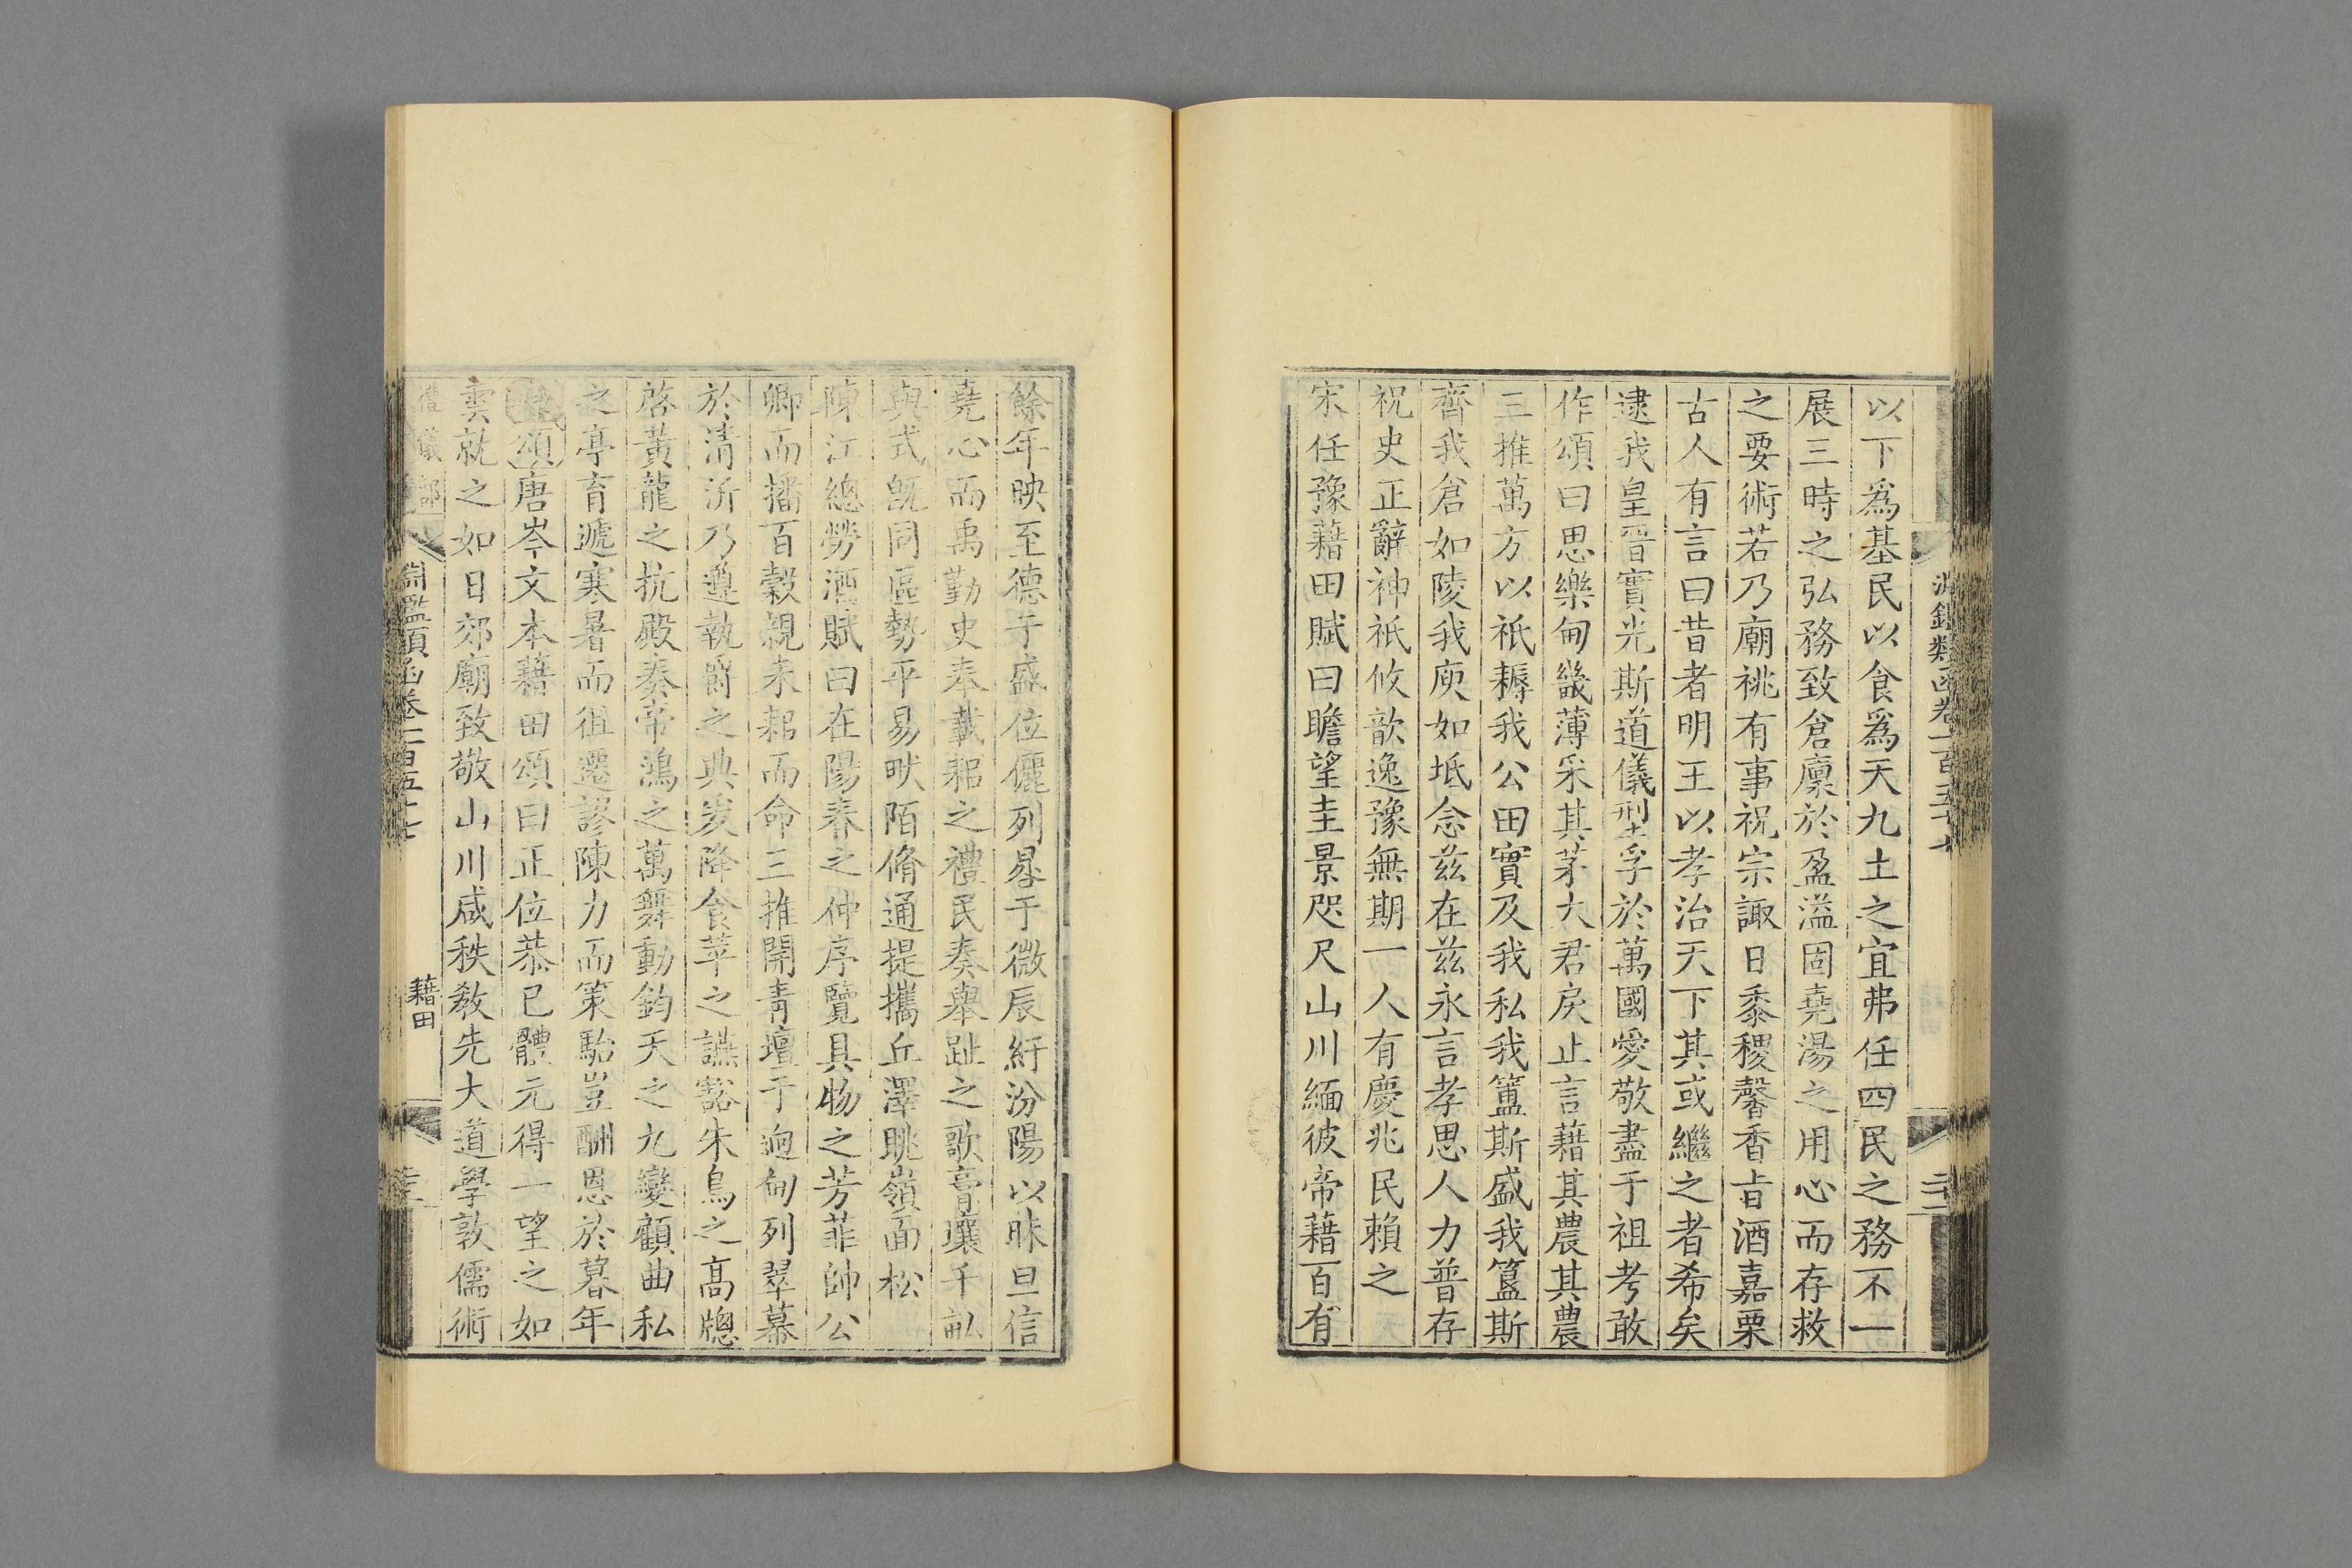 以下爲基民以食爲天九土之宜弗任四民之務不一
展三時之弘務致倉廩於盈溢固堯湯之用心而存救
之要術若乃廟祧有事祝宗諏日黍稷馨香旨酒嘉栗
古人有言曰昔者明王以孝治天下其或繼之者希矣
逮我皇晉實光斯道儀刑孚於萬國愛敬盡于祖考敢
作頌曰思樂甸畿薄采其茅大君戾止言藉其農其農
三推萬方以祇耨我公田實及我私我簠斯盛我簋斯
齊我倉如陵我庾如坻念兹在兹永言孝思人力普存
祝史正辭神祇攸歆逸豫無期一人有慶兆民賴之
宋任豫藉田賦曰瞻望圭景咫尺山川緬彼帝藉百有
餘年映至德于盛位儷列晷于微辰紆汾陽以昧旦信
堯心而禹勤史奉載耜之禮民奏舉趾之歌膏壤千畝
與式既同區勢平易畎陌脩通提攜丘澤眺嶺面松
陳江總勞酒賦曰在陽春之仲序覽具物之芳菲帥公
卿而播百穀親耒耜而命三推開青壇于迥甸列翠幕
於清沂乃遵執爵之典爰降食苹之讌豁朱鳥之高牎
啓黃龍之抗殿奏帝鴻之萬舞動鈞天之九變顧曲私
之亭育遞寒暑而徂遷謬陳力而策駘豈酬恩於暮年
頌唐岑文本藉田頌曰正位恭已體元得一望之如
雲就之如日郊廟致敬山川咸秩敎先大道學敦儒術
禮儀部
淵鑑類函卷一百五十七
藉田